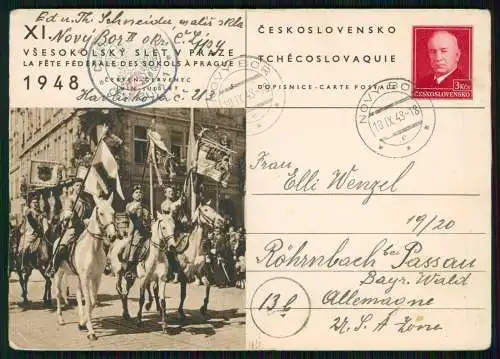 Ed u. Th. Schneider malíř skla
XI. Nový Bor II okr. Č. Lípy
VŠESOKOLSKÝ SLET V PRAZE
LA FÊTE FÉDÉRALE DES SOKOLS À PRAGUE
1948 ČERVEN-ČERVENEC
JUIN-JUILLET
Havlíčkova č. 213
ČESKOSLOVENSKO
TCHÉCOSLOVAQUIE
DOPISNICE - CARTE POSTALE
3 Kčs
ČESKOSLOVENSKO
NOVÝ BOR
18.IX.48-18
NOVÝ BOR
18.IX.48-18
Frau
Elli Wenzel
19/20
Röhrnbach bei Passau
Bayr. Wald
13b Allemagne
U. S. A Zone